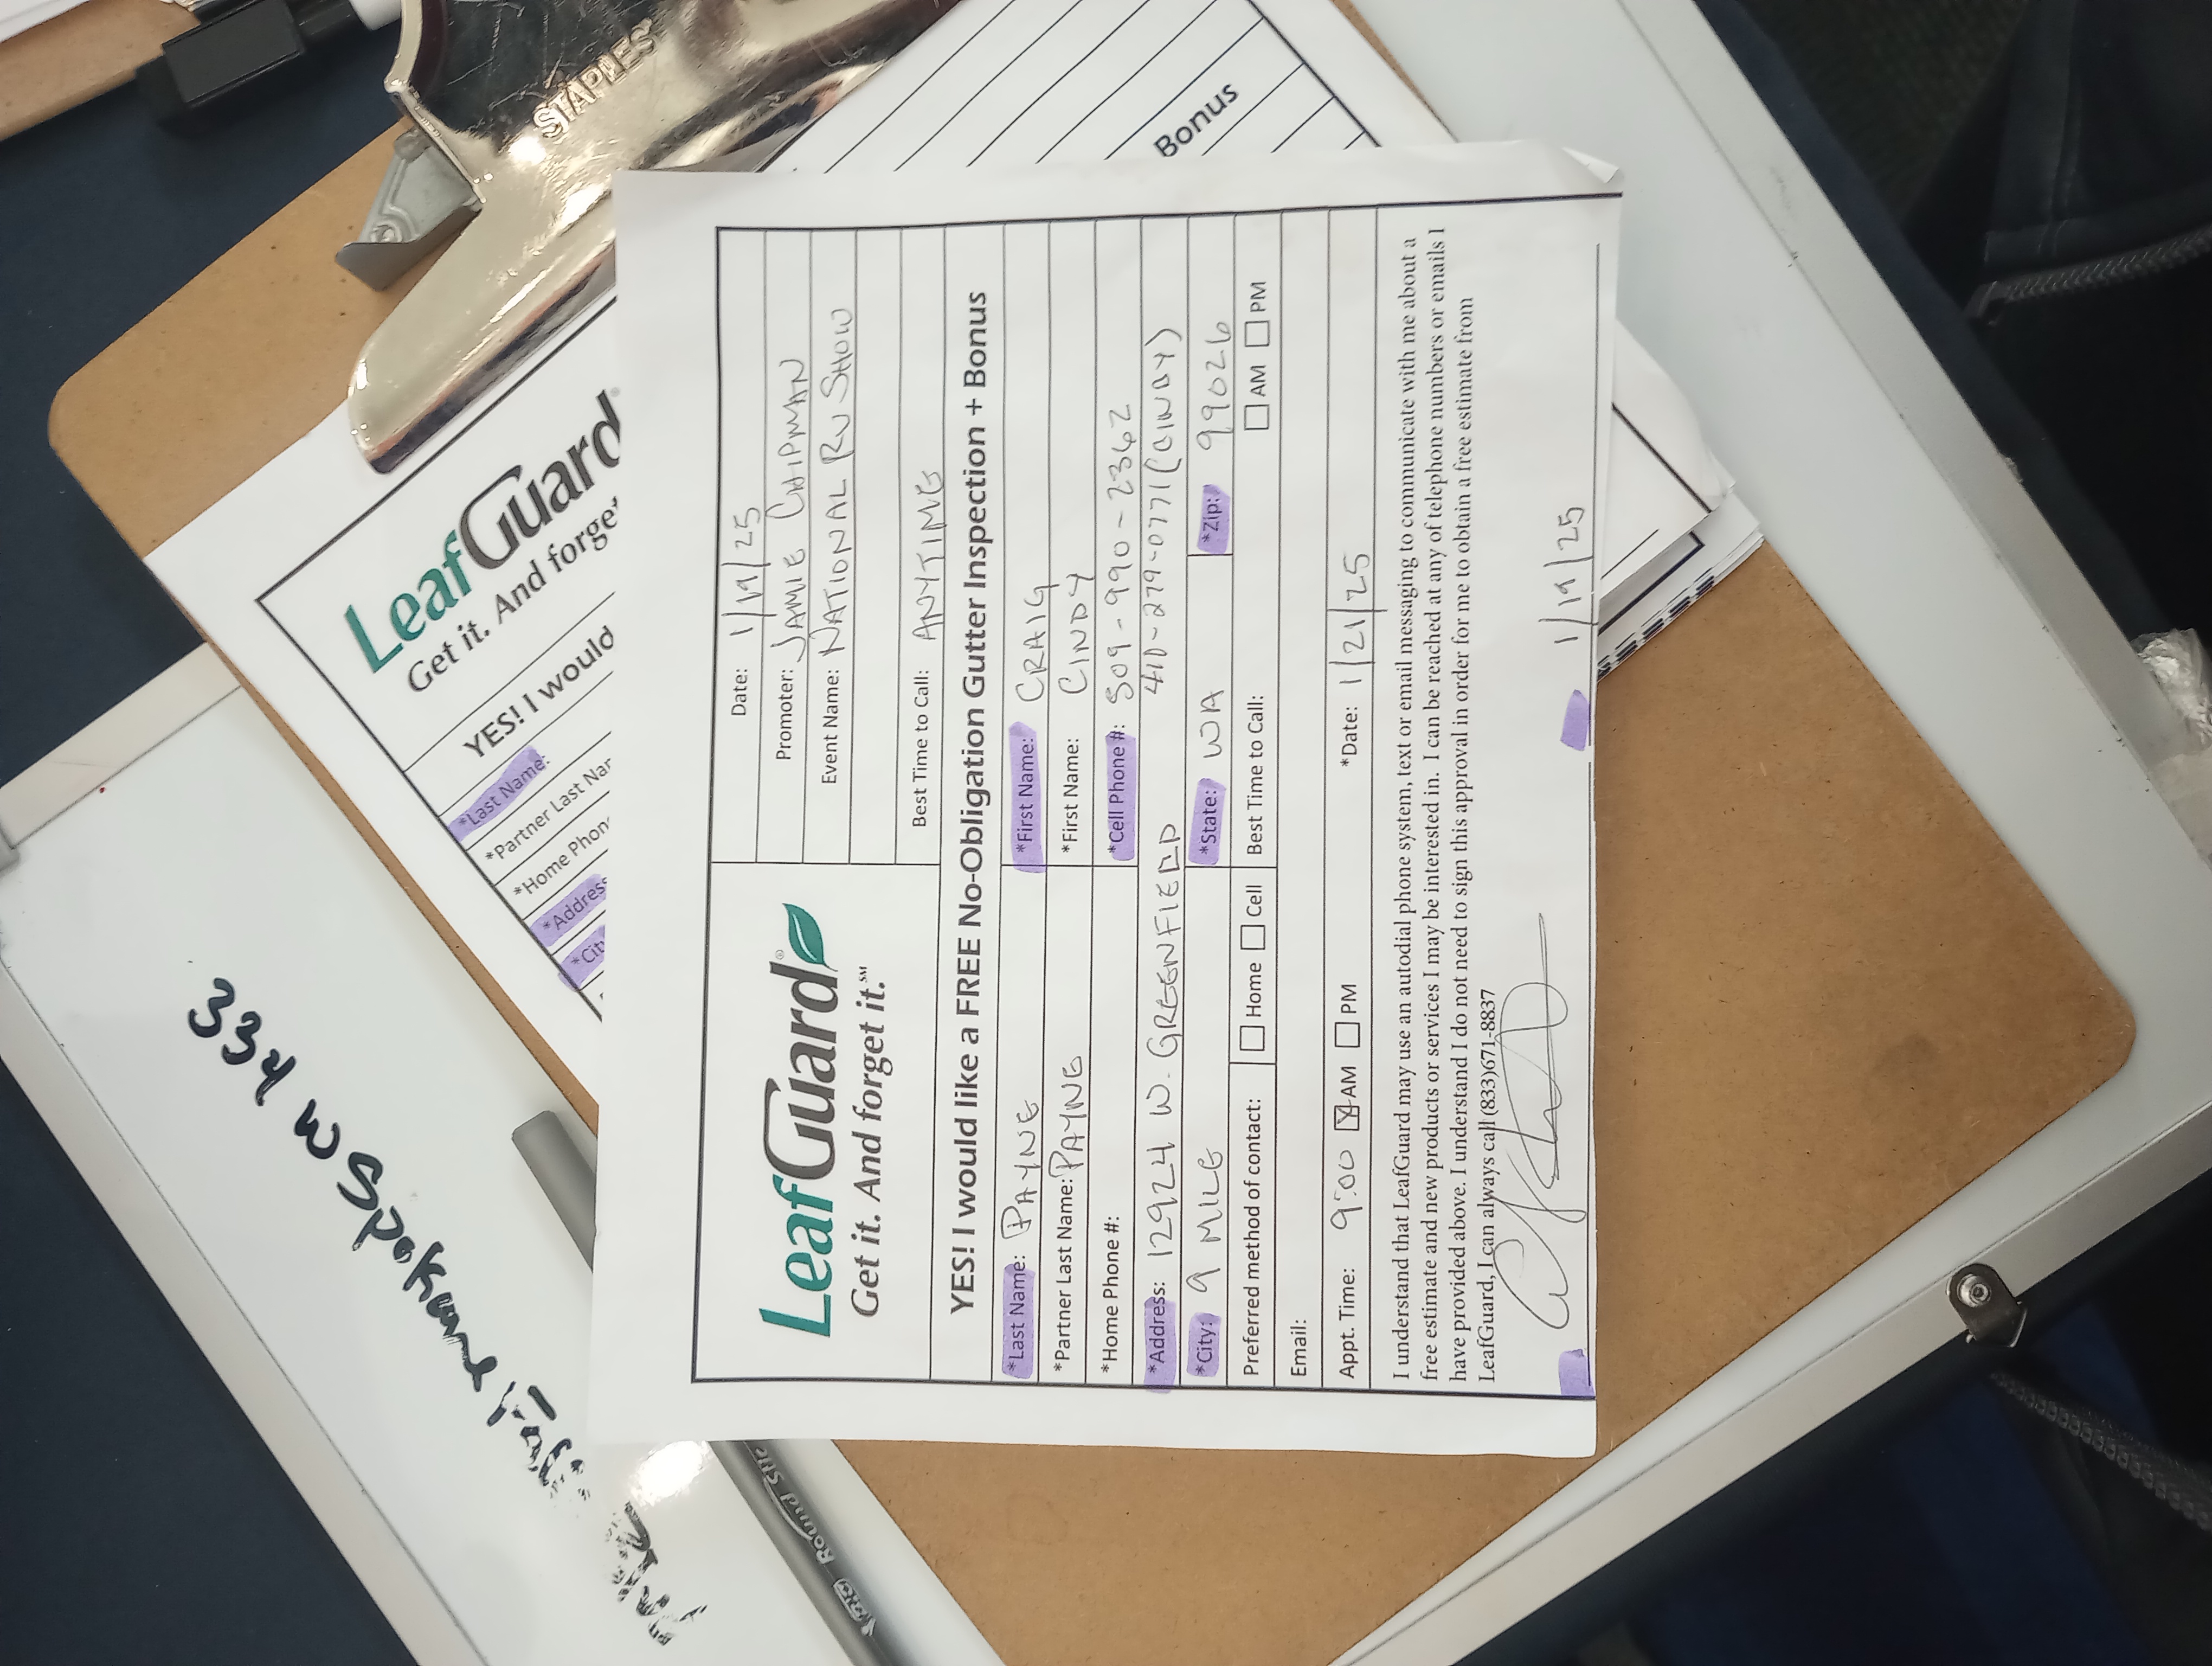 334 W Spokane
LeafGuard®
Get it. And forget
YES! I would
*Last Name:
*Partner Last Nar
*Home Phon
*Address
*Cit
STAPLES
BIC Round Stic
LeafGuard®
Get it. And forget it.℠
Date: 1/19/25
Promoter: JAMIE CHIPMAN
Event Name: NATIONAL RV SHOW
Best Time to Call: ANYTIME
YES! I would like a FREE No-Obligation Gutter Inspection + Bonus
*Last Name: PAYNE *First Name: CRAIG
*Partner Last Name: PAYNE *First Name: CINDY
*Home Phone #: *Cell Phone #: 509-990-2362
*Address: 12924 W. GREENFIELD 410-279-0771 (CINDY)
*City: 9 MILE *State: WA *Zip: 99026
Preferred method of contact: Home Cell Best Time to Call: AM PM
Email:
Appt. Time: 9:00 AM PM *Date: 1/21/25
I understand that LeafGuard may use an autodial phone system, text or email messaging to communicate with me about a
free estimate and new products or services I may be interested in. I can be reached at any of telephone numbers or emails I
have provided above. I understand I do not need to sign this approval in order for me to obtain a free estimate from
LeafGuard, I can always call (833)671-8837
1/19/25
Bonus